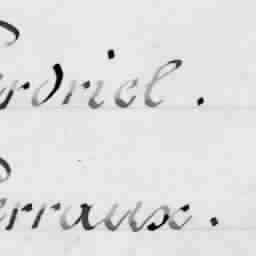 erdriel.
erraux.